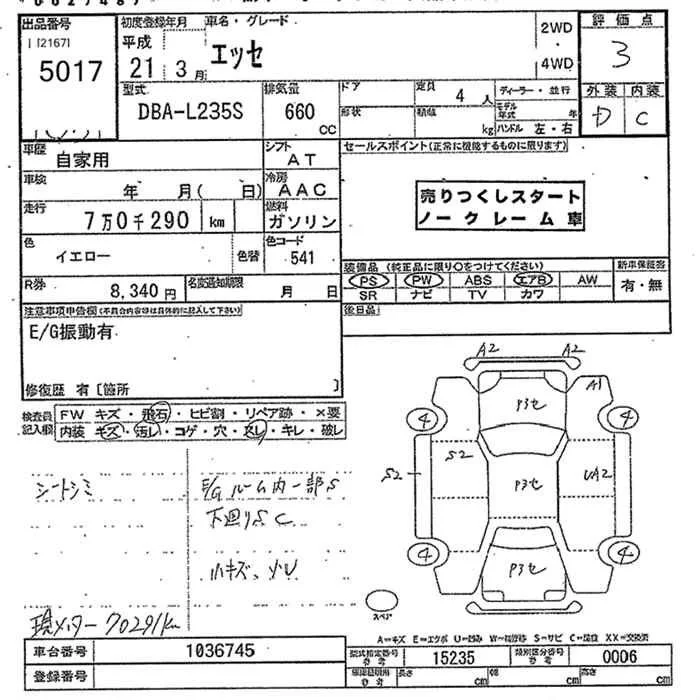 出品番号 初度登録年月 車名・グレード 評価点
[2167] 平成 エッセ 2WD
5017 21年3月 4WD 3
型式 排気量 ドア 定員 4人 ディーラー・並行 外装 内装
DBA-L235S 660cc 形状 積載 kg モデル年式 年 ハンドル 左・右 D C
車歴 自家用 シフト AT セールスポイント(正常に機能するものに限ります)
車検 年 月( 日) 冷房 AAC
走行 7万0千290 km 燃料 ガソリン
売りつくしスタート
ノークレーム車
色 イエロー 色替 色コード 541
装備品 (純正品に限り○をつけてください) 新車保証書
PS PW ABS エアB AW 有・無
SR ナビ TV カワ
R券 8,340円 名変通知期限 月 日
後日品
注意事項申告欄(不具合内容等は具体的に記入して下さい)
E/G振動有
修復歴 有 [箇所 ]
検査員記入欄 FW キズ・飛石・ヒビ割・リペア跡・×要
内装 キズ・汚レ・コゲ・穴・スレ・キレ・破レ
シートシミ
E/Gルーム内一部S
下廻りS C
小キズ、小U
現メーター70291km
A2 A2
A1
P3セ
4 4
S2 S2 P3セ UA2
4 4
P3セ
スペア
A=キズ E=エクボ U=凹み W=補修跡 S=サビ C=腐蝕 XX=交換済
車台番号 1036745
型式指定番号 参考 15235 類別区分番号 参考 0006
登録番号
長さ cm 幅 cm 高さ cm